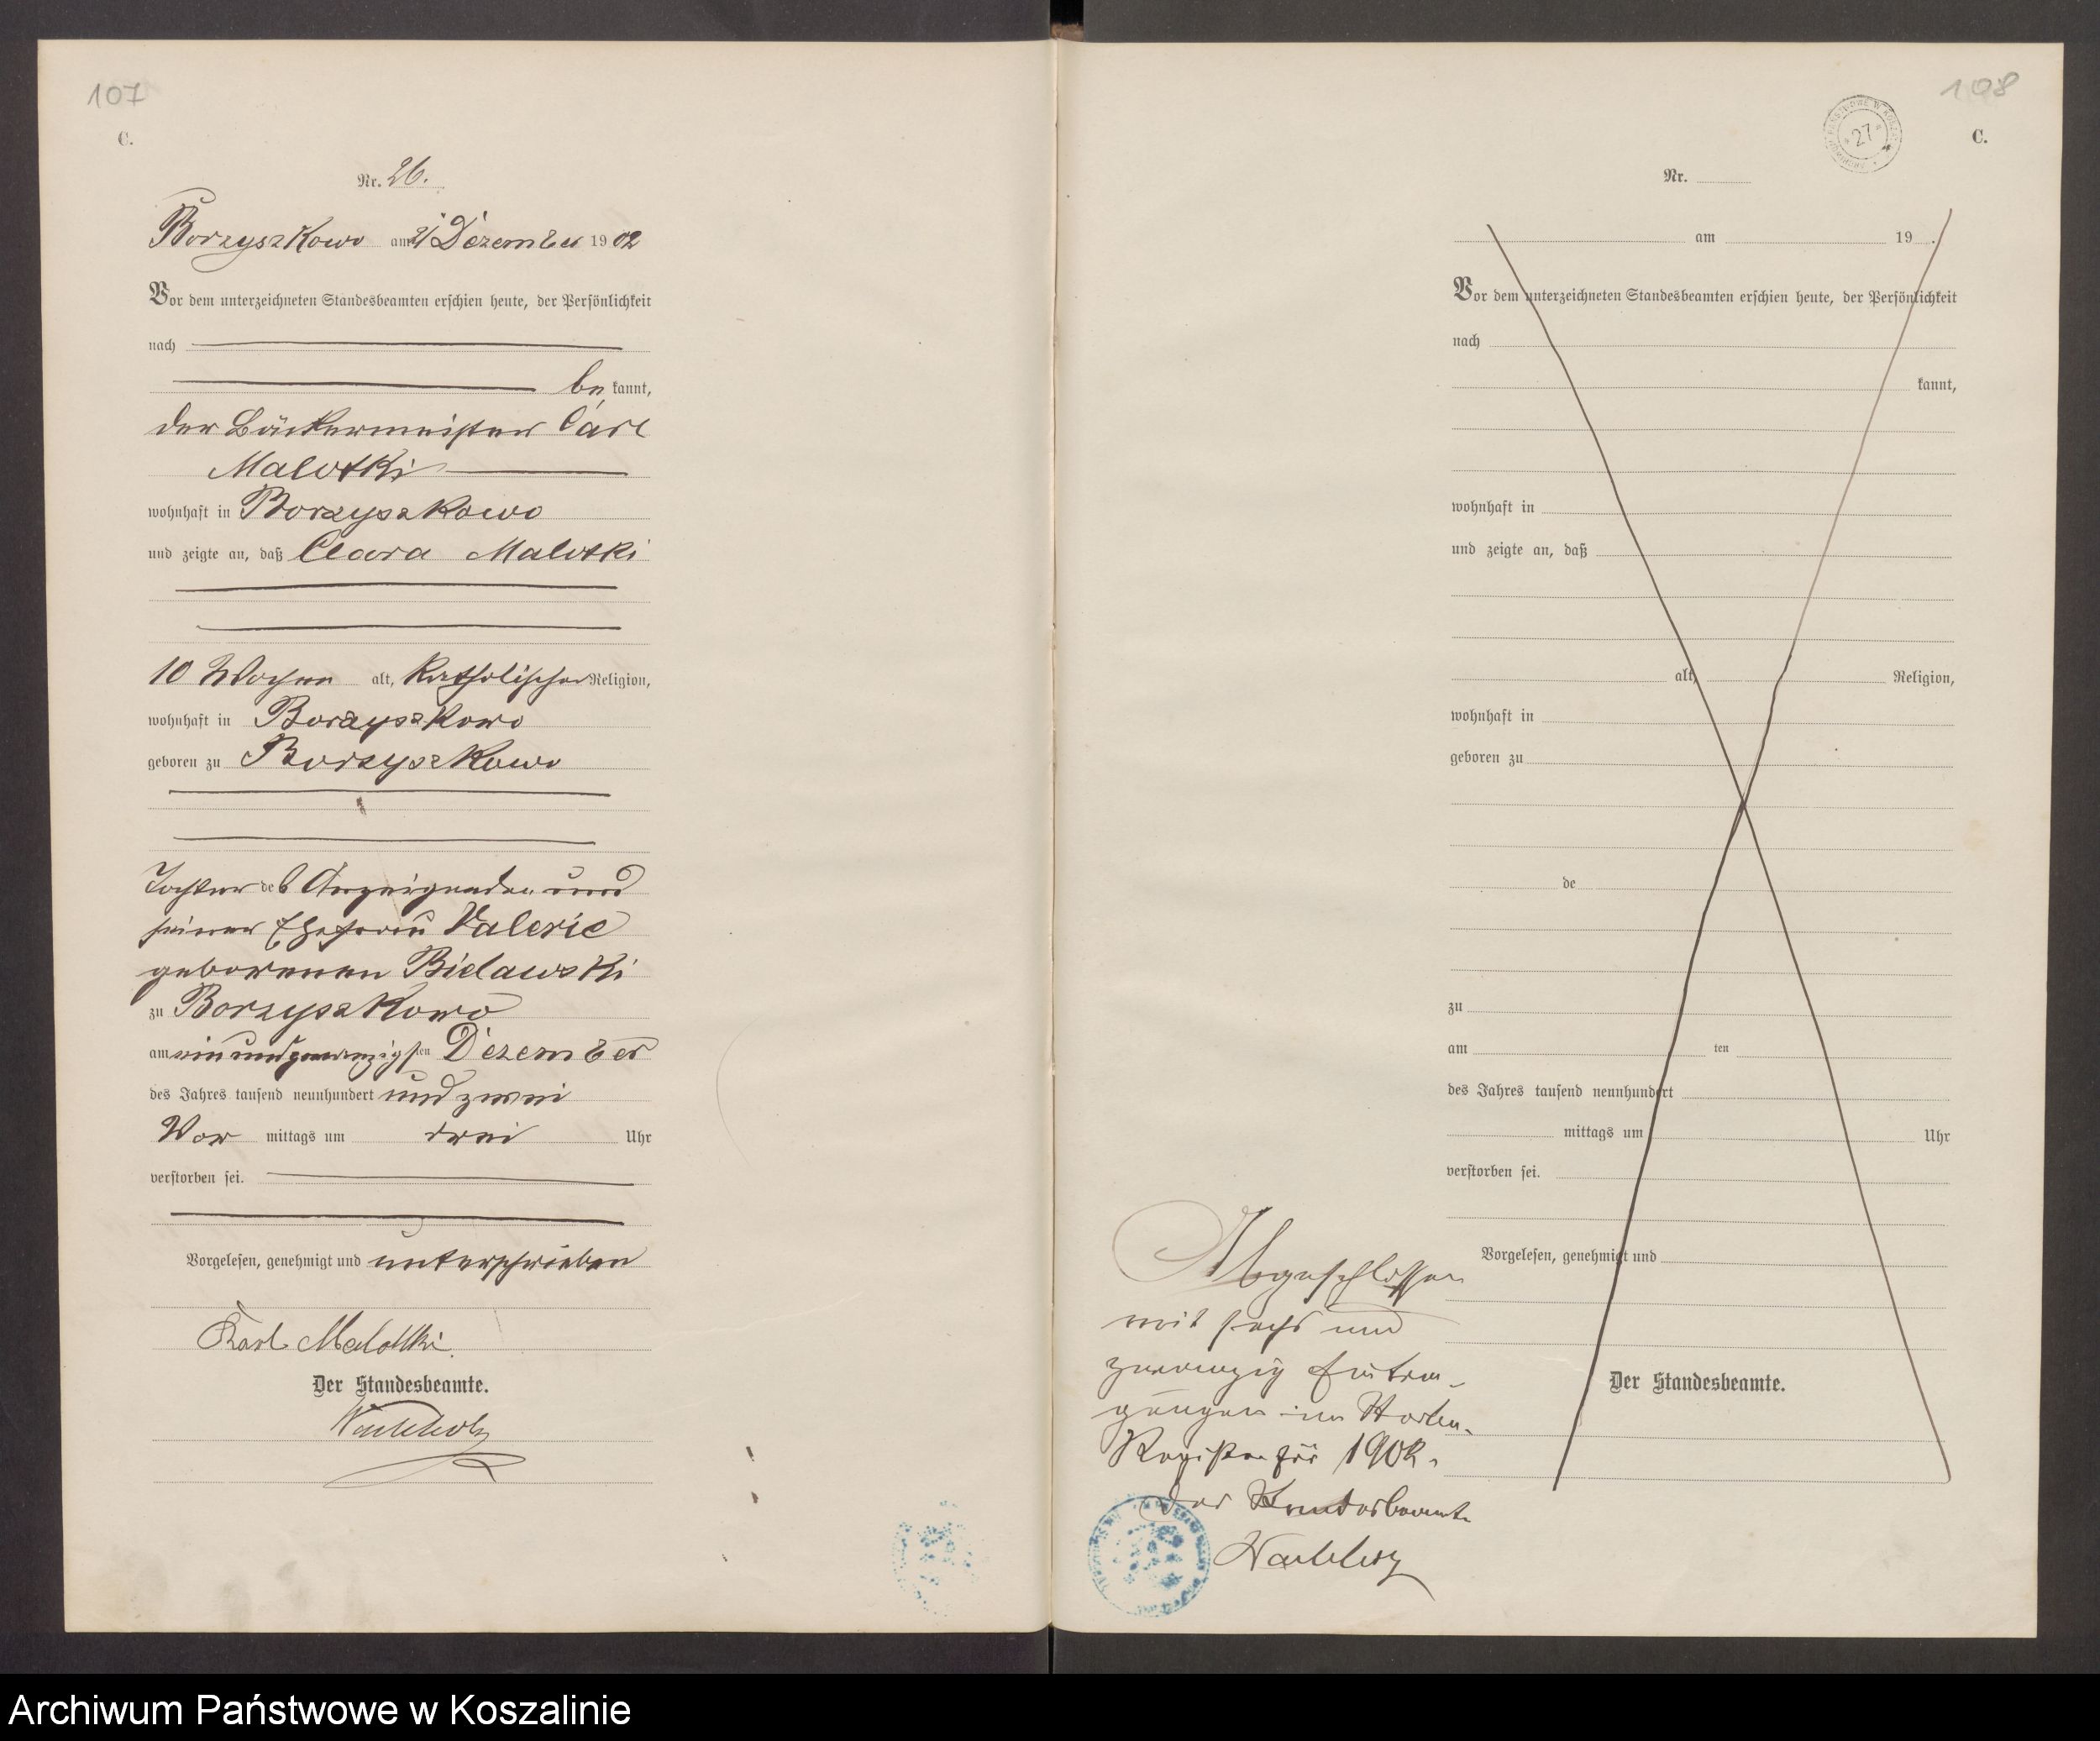 107
C.
Nr. 26.
Borzyszkowo am 21 Dezember 1902
Vor dem unterzeichneten Standesbeamten erschien heute, der Persönlichkeit
nach
bekannt,
der Bäckermeister Carl
Malotki
wohnhaft in Borzyszkowo
und zeigte an, daß Clara Malotki
10 Wochen alt, katholischer Religion,
wohnhaft in Borzyszkowo
geboren zu Borzyszkowo
Tochter des Anzeigenden und
seiner Ehefrau Valerie
geborenen Bielawski
zu Borzyszkowo
am einundzwanzigsten Dezember
des Jahres tausend neunhundert und zwei
Vor mittags um drei Uhr
verstorben sei.
Vorgelesen, genehmigt und unterschrieben
Karl Malottki.
Der Standesbeamte.
108
C.
27
Nr.
am 19
Vor dem unterzeichneten Standesbeamten erschien heute, der Persönlichkeit
nach
kannt,
wohnhaft in
und zeigte an, daß
alt, Religion,
wohnhaft in
geboren zu
de
zu
am ten
des Jahres tausend neunhundert
mittags um Uhr
verstorben sei.
Vorgelesen, genehmigt und
Der Standesbeamte.
Abgeschlossen
mit sechs und
zwanzig Eintra-
gungen im Sterbe-
Register für 1902.
Der Standesbeamte
Archiwum Państwowe w Koszalinie